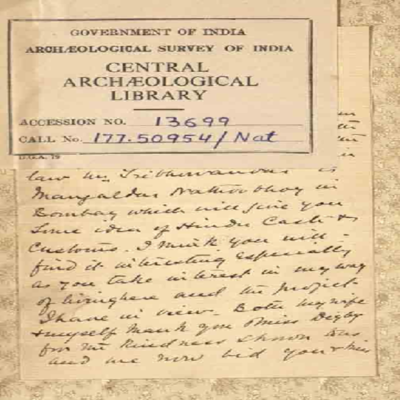 GOVERNMENT OF INDIA
ARCHÆOLOGICAL SURVEY OF INDIA
CENTRAL
ARCHÆOLOGICAL
LIBRARY
ACCESSION NO. 13699
CALL No. 177.50954/Nat
D.G.A. 79
law Mr. Tribhovandas
Mangaldas Nathoobhoy in
Bombay which will give you
some idea of Hindu Caste &
Customs. I think you will
find it interesting especially
as you take interest in my way
of living here and the project
I have in view. Both my wife
& myself thank you & Miss Digby
for the kindness shown us
and we now bid you & Miss